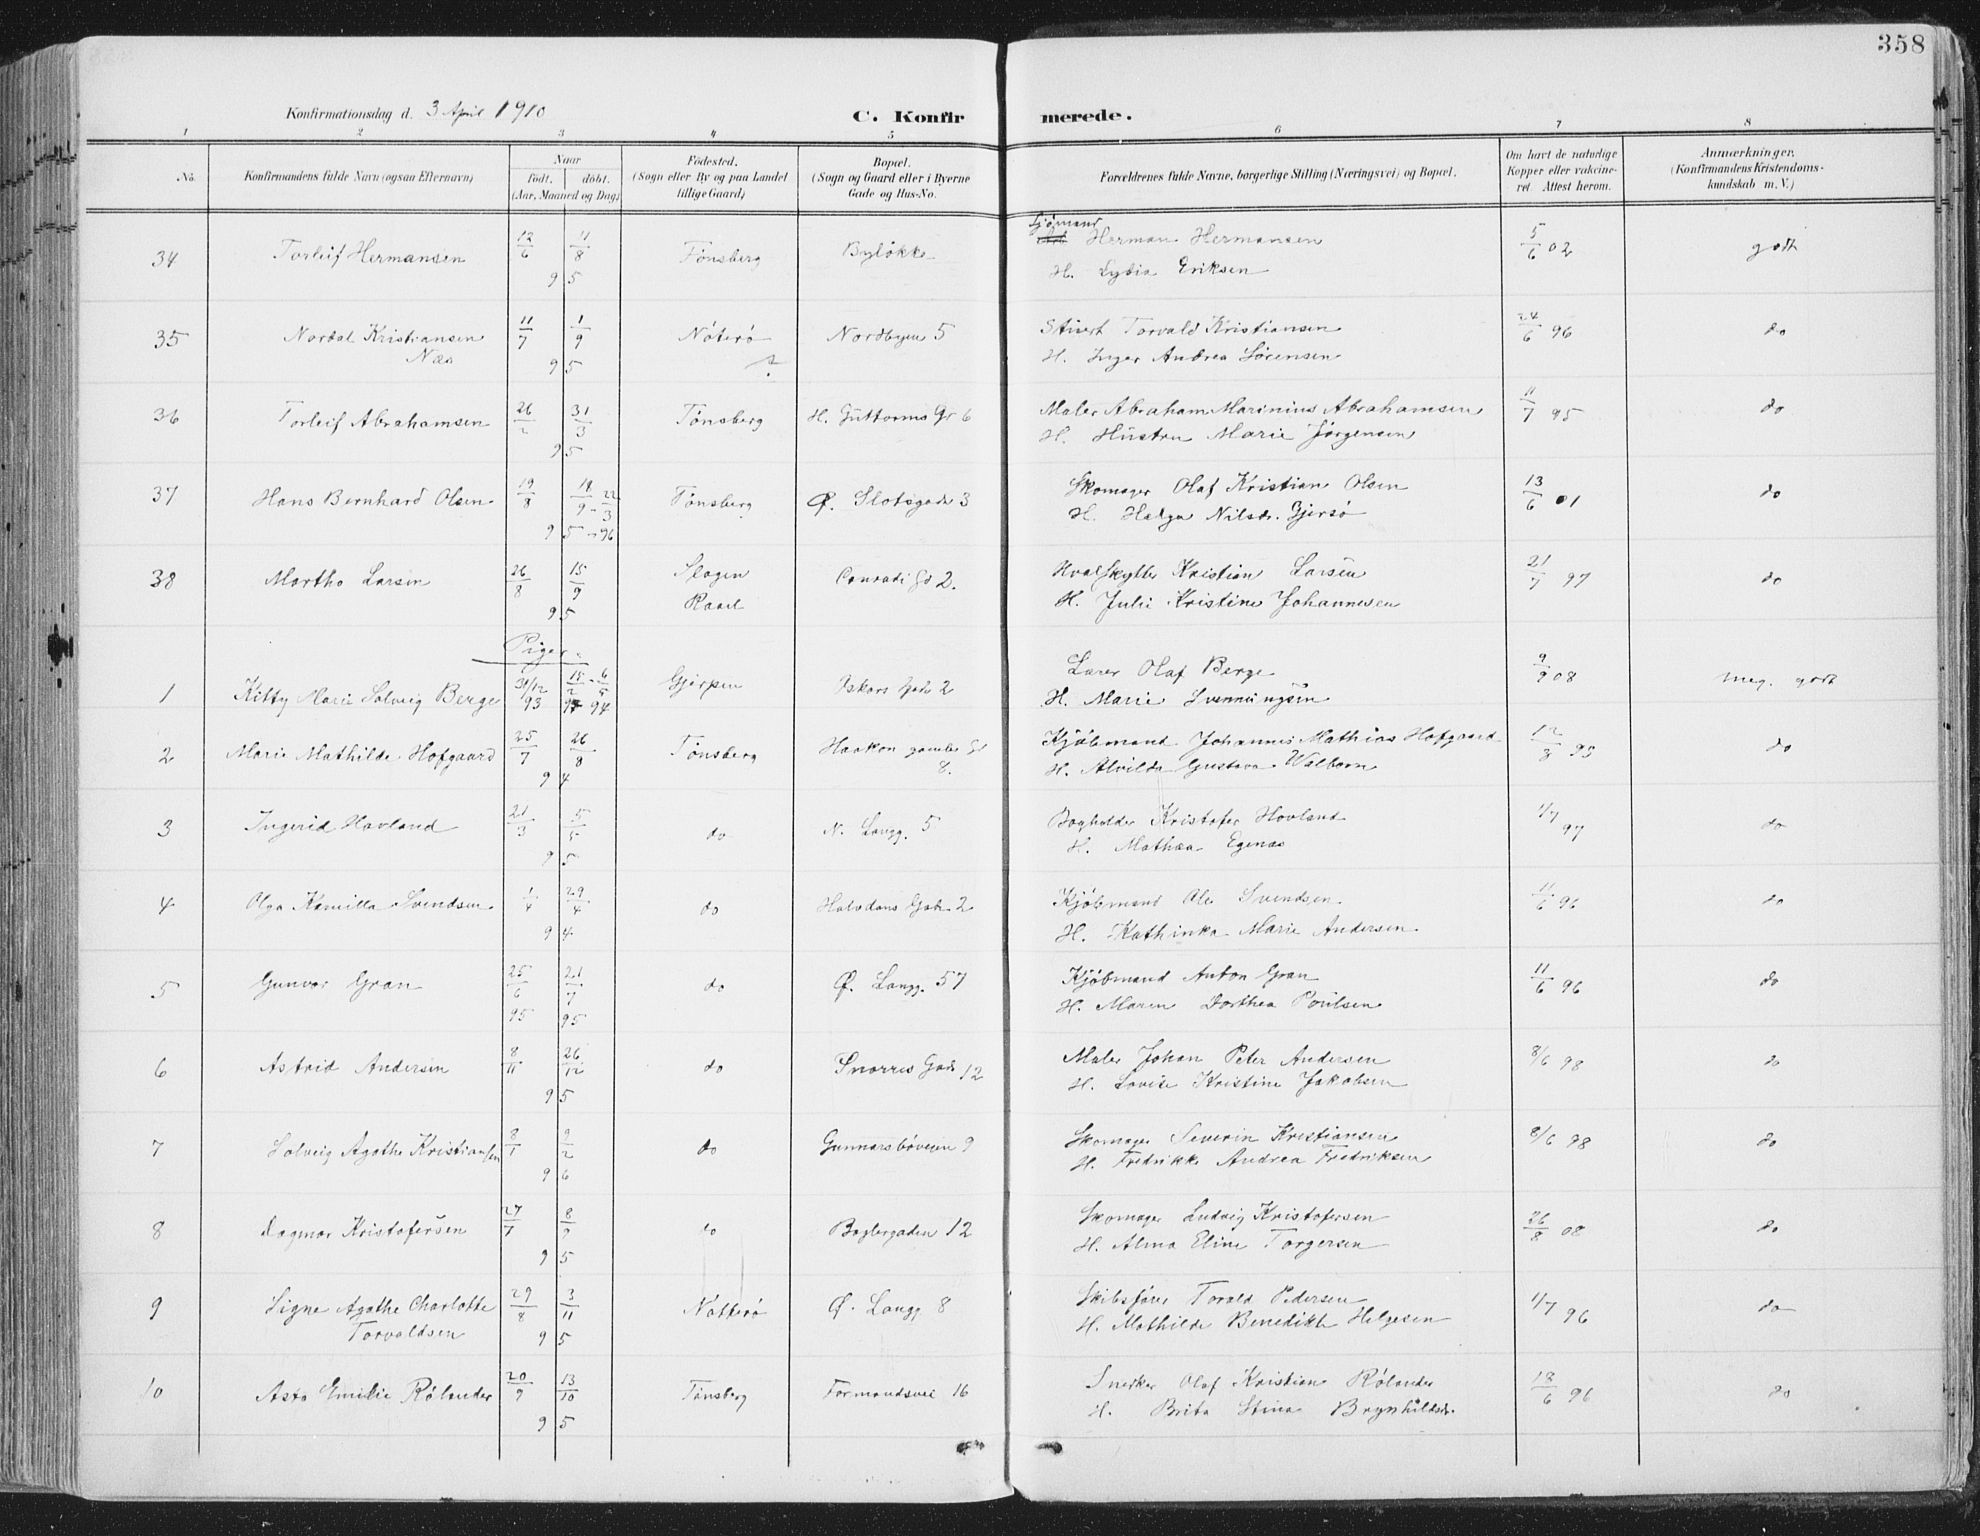 358
Konfirmationsdag d. 3 April 1910
C. Konfirmerede.
1 2 3 4 5 6 7 8
No.
Konfirmandens fulde Navn (ogsaa Efternavn)
Naar
født. døbt.
(Aar, Maaned og Dag)
Fødested.
(Sogn eller By og paa Landet
tillige Gaard)
Bopæl.
(Sogn og Gaard eller i Byerne
Gade og Hus-No.
Forældrenes fulde Navne, borgerlige Stilling (Næringsvei) og Bopæl.
Om havt de naturlige
Kopper eller vakcine-
ret. Attest herom.
Anmærkninger.
(Konfirmandens Kristendoms-
kundskab m. V.)
34 Torleif Hermansen 12/6 11/8 95 Tønsberg Byløkke Sjømand Herman Hermansen 5/6 02 godt
H. Lydia Eriksen
35 Nordal Kristiansen 11/7 1/9 95 Nøterø Nordbyen 5 Stuert Torvald Kristiansen 24/6 96 do
Næs ? H. Inger Andrea Sørensen
36 Torleif Abrahamsen 26/2 31/3 95 Tønsberg H. Guttorms Gr 6 Maler Abraham Marinius Abrahamsen 11/7 95 do
H. Hustru Marie Jørgensen
37 Hans Bernhard Olsen 19/8 18/9 - 22/3 95 - 96 Tønsberg Ø. Slotsgade 3 Skomager Olaf Kristian Olsen 13/6 01 do
H. Helga Nilsdr. Gjersø
38 Martho Larsen 26/8 15/9 95 Slagen Conradi Gd 2. Hvalskytter Kristian Larsen 21/7 97 do
Raael H. Julie Kristine Johannesen
Piger.
1 Kitty Marie Solveig Berge 31/12 93 15/2 - 6/5 94 Gjerpen Oskars Gade 2 Lærer Olaf Berge 9/9 08 meg. godt
H. Marie Svenningsen
2 Marie Mathilde Hofgaard 25/7 26/8 94 Tønsberg Haakon gamles Gd 8. Kjøbmand Johannes Mathias Hofgaard 12/8 95 do
H. Alvilda Gustava Walborn
3 Ingerid Hovland 21/3 5/5 95 do N. Langg. 5 Bogholder Kristofer Hovland 1/7 97 do
H. Mathea Egenæs
4 Olga Kamilla Svendsen 1/4 29/4 94 do Halvdans Gade 2 Kjøbmand Ole Svendsen 11/6 96 do
H. Kathinka Marie Andersen
5 Gunvor Gran 25/6 95 21/7 95 do Ø. Langg. 57 Kjøbmand Anton Gran 11/6 96 do
H. Maren Dorthea Poulsen
6 Astrid Andersen 8/11 26/12 95 do Snorres Gade 12 Maler Johan Peter Andersen 8/6 98 do
H. Lovise Kristine Jakobsen
7 Solveig Agathe Kristiansen 8/1 9/2 96 do Gunnarsbøveien 9 Skomager Severin Kristiansen 8/6 98 do
H. Fredrikke Andrea Fredriksen
8 Dagmar Kristofersen 27/7 8/9 95 do Baglergaden 12 Skomager Ludvig Kristofersen 26/8 08 do
H. Alma Eline Torgersen
9 Signe Agathe Charlotte 29/8 3/11 95 Nøtterø Ø. Langg 8 Skibsfører Torald Pedersen 1/7 96 do
Torvaldsen H. Mathilde Benedikte Helgesen
10 Asta Emilie Rølander 20/9 13/10 95 Tønsberg Formandsvei 16 Snedker Olaf Kristian Rølander 18/6 96 do
H. Brita Stina Brynhildsdr.